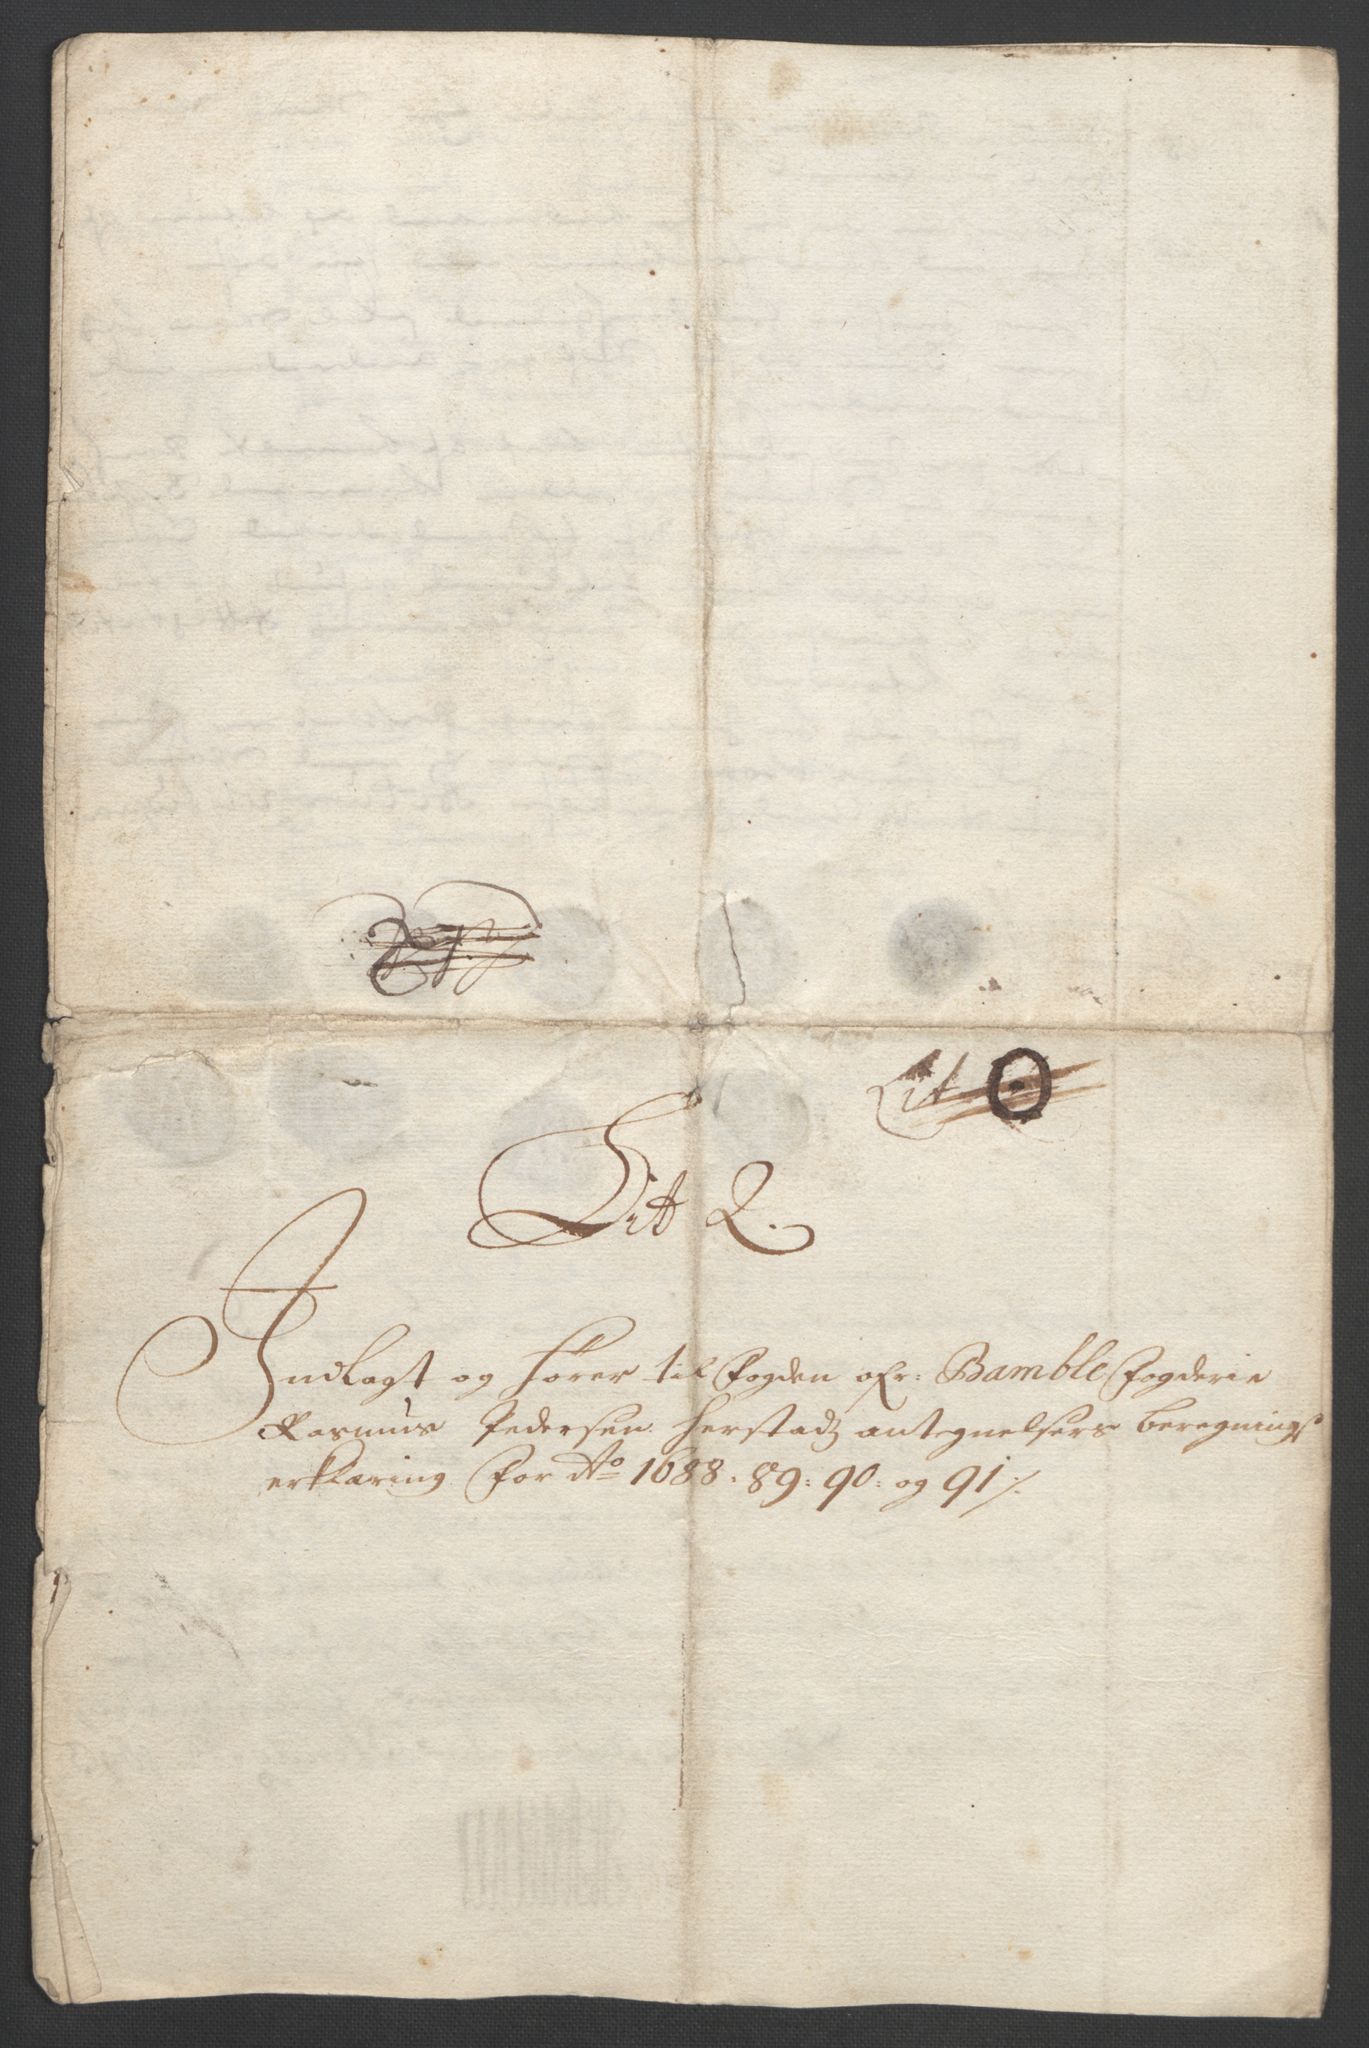 Lit O
Lit Q.
Indlagt og hörer til Fogden ofr: Bamble Fogderie
Rasmus Pedersen Herstadz antegnelsers beregnings
erklaring for Ao 1688: 89: 90: og 91 ⁒